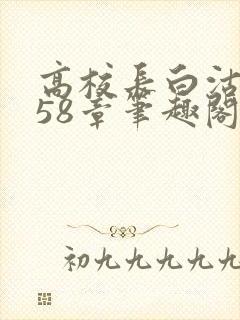 高校长白沽
58章笔趣阁
初九九九九九